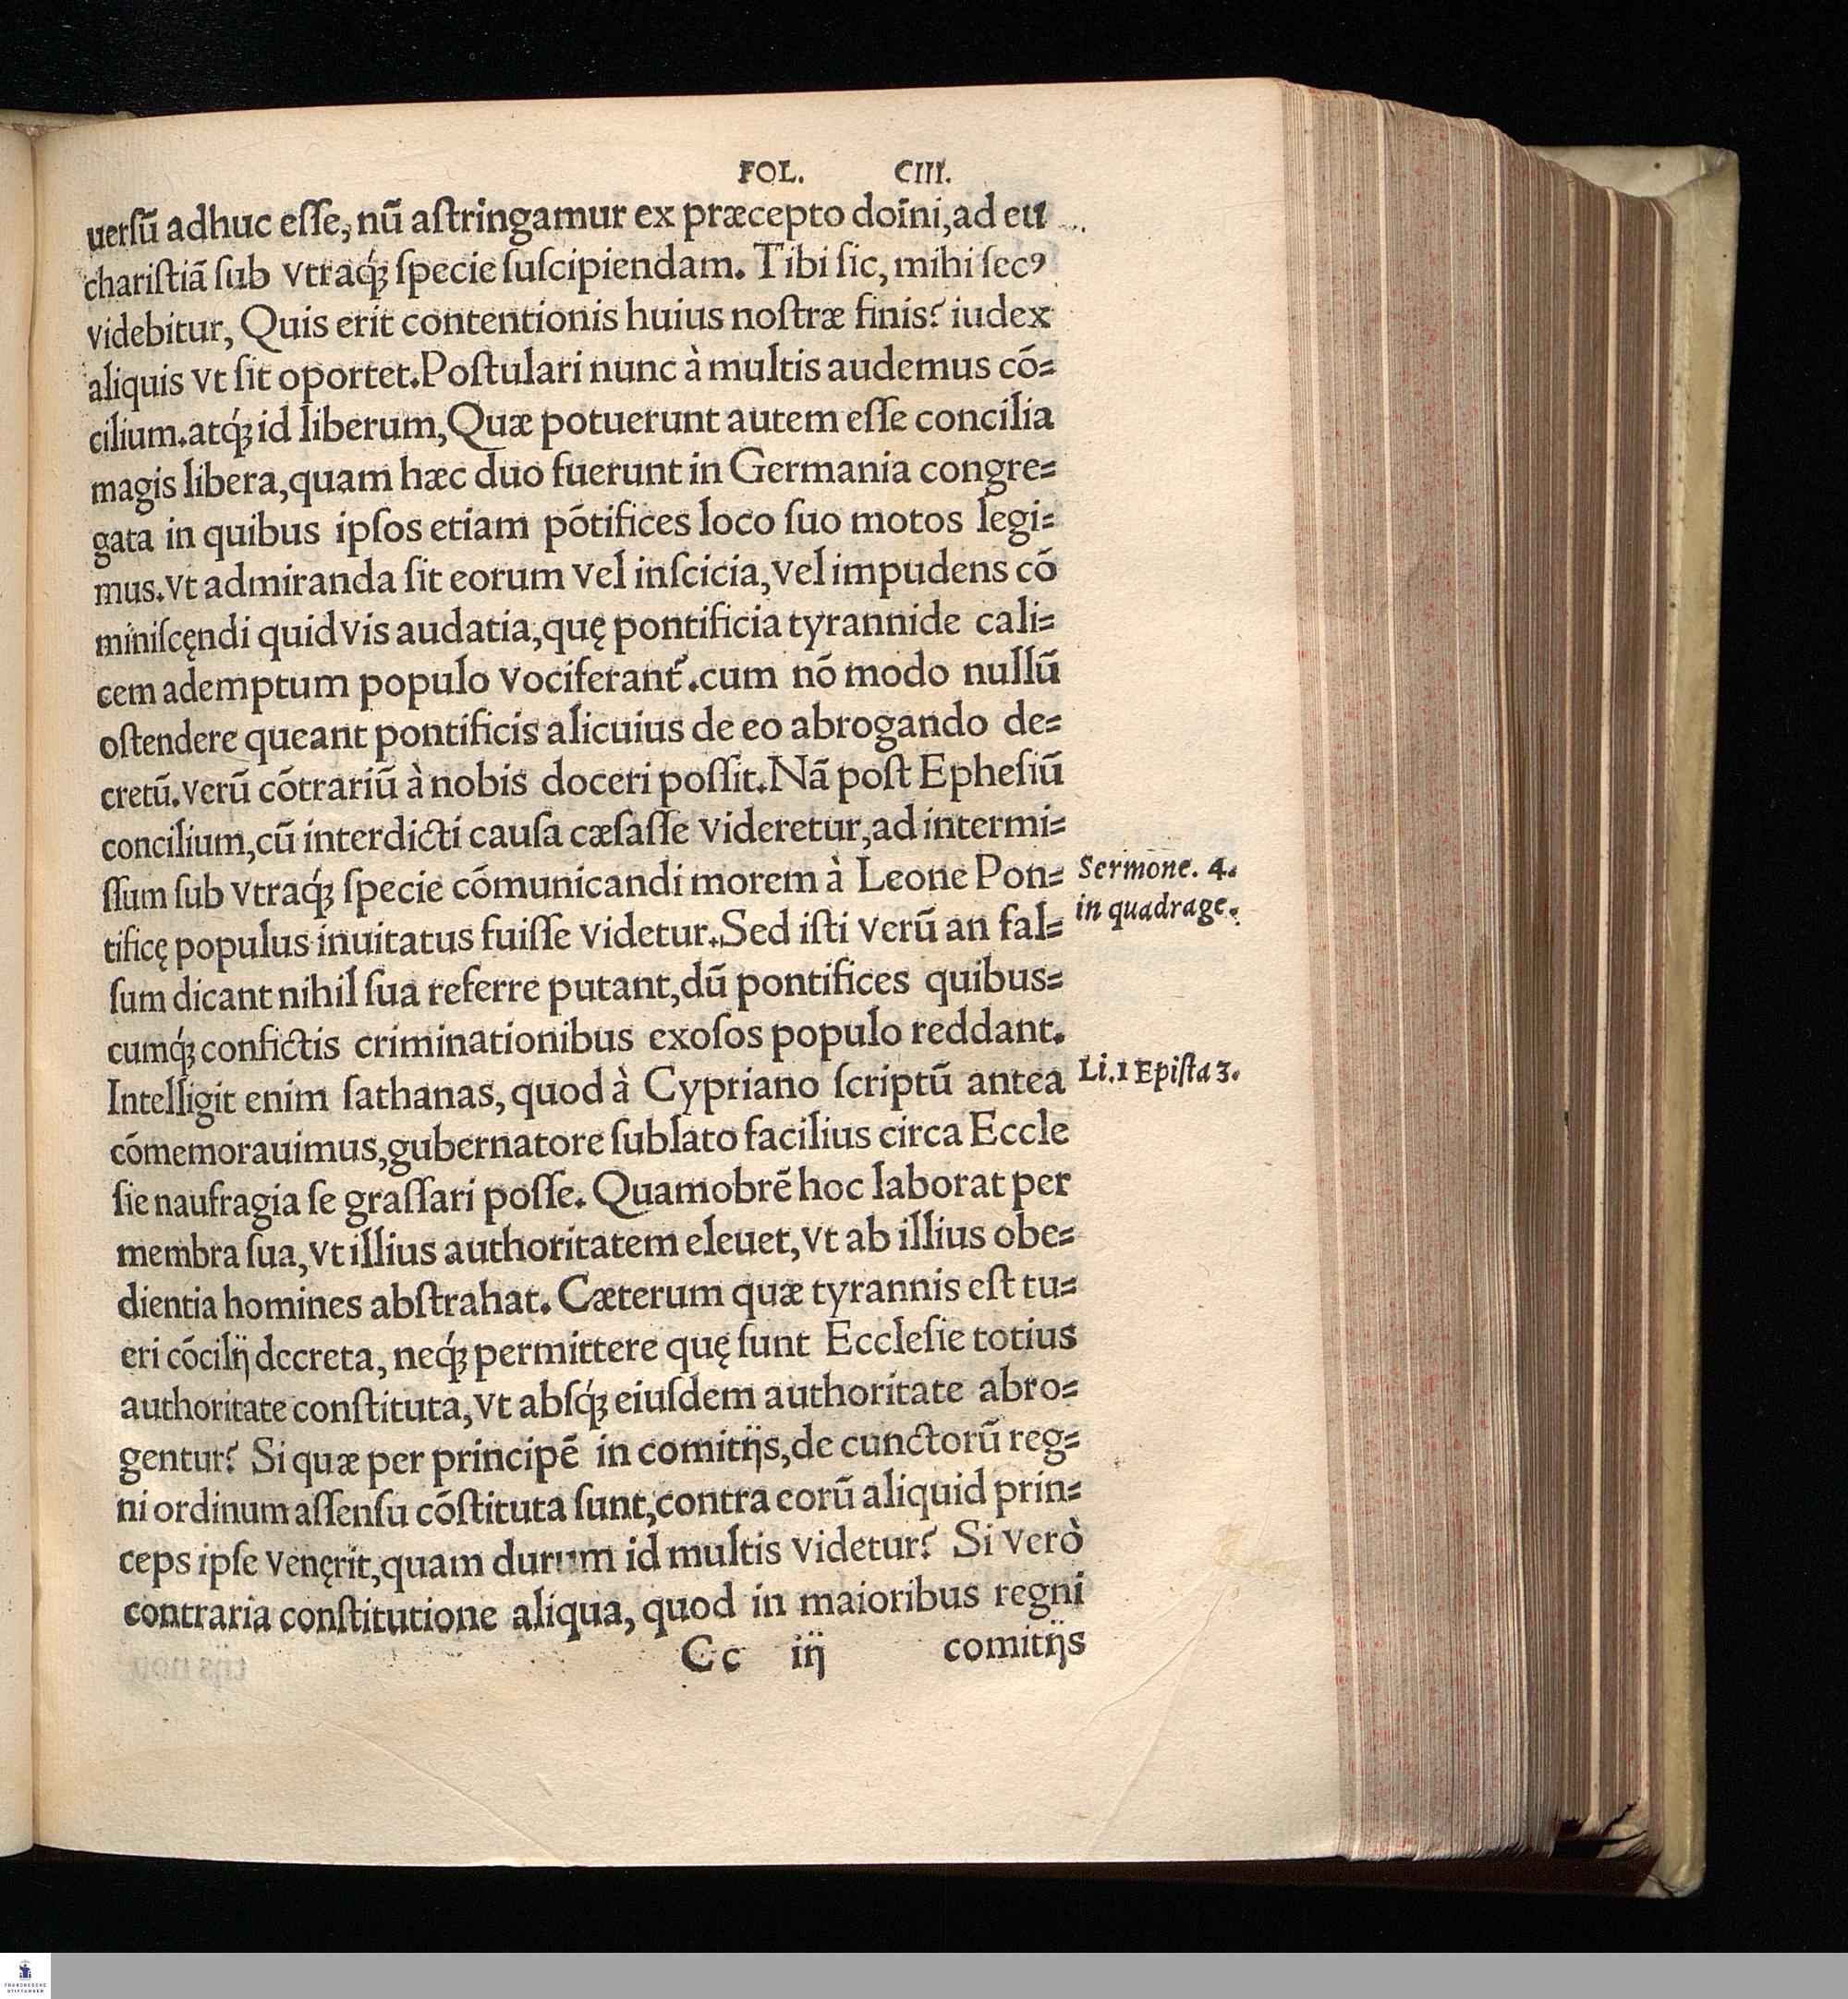 FOL. CIII.
uersũ adhuc eſſe, nũ aſtringamur ex præcepto doĩni, ad eu
chariſtiã ſub vtraq́ꝫ ſpecie ſuſcipiendam. Tibi ſic, mihi ſecꝰ
videbitur, Quis erit contentionis huius noſtræ finis? iudex
aliquis vt ſit oportet. Poſtulari nunc à multis audemus cõ⸗
cilium. atq́ꝫ id liberum, Quæ potuerunt autem eſſe concilia
magis libera, quam hæc duo fuerunt in Germania congre⸗
gata in quibus ipſos etiam põtifices loco ſuo motos legi⸗
mus. vt admiranda ſit eorum vel inſcicia, vel impudens cõ
miniſcęndi quidvis audatia, quę pontificia tyrannide cali⸗
cem ademptum populo vociferant᷑. cum nõ modo nullũ
oſtendere queant pontificis alicuius de eo abrogando de⸗
cretũ. verũ cõtrariũ à nobis doceri poſſit. Nã poſt Epheſiũ
concilium, cũ interdicti cauſa cæſaſſe videretur, ad intermi⸗
ſſum ſub vtraq́ꝫ ſpecie cõmunicandi morem à Leone Pon⸗
Sermone. 4.
in quadrage.
tificę populus inuitatus fuiſſe videtur. Sed iſti verũ an fal⸗
ſum dicant nihil ſua referre putant, dũ pontifices quibus⸗
cumq́ꝫ confictis criminationibus exoſos populo reddant.
Intelligit enim ſathanas, quod à Cypriano ſcriptũ antea
Li. 1 Epiſta 3.
cõmemorauimus, gubernatore ſublato facilius circa Eccle
ſie naufragia ſe graſſari poſſe. Quamobrẽ hoc laborat per
membra ſua, vt illius authoritatem eleuet, vt ab illius obe⸗
dientia homines abſtrahat. Cæterum quæ tyrannis eſt tu⸗
eri cõcilĳ dccreta, neq́ꝫ permittere quę ſunt Eccleſie totius
authoritate conſtituta, vt abſq́ꝫ eiuſdem authoritate abro⸗
gentur? Si quæ per principẽ in comitĳs, de cunctorũ reg⸗
ni ordinum aſſenſu cõſtituta ſunt, contra eorũ aliquid prin⸗
ceps ipſe venęrit, quam durum id multis videtur? Si verò
contraria conſtitutione aliqua, quod in maioribus regni
Cc iĳ comitĳs
FRANCKESCHE
STIFTUNGEN